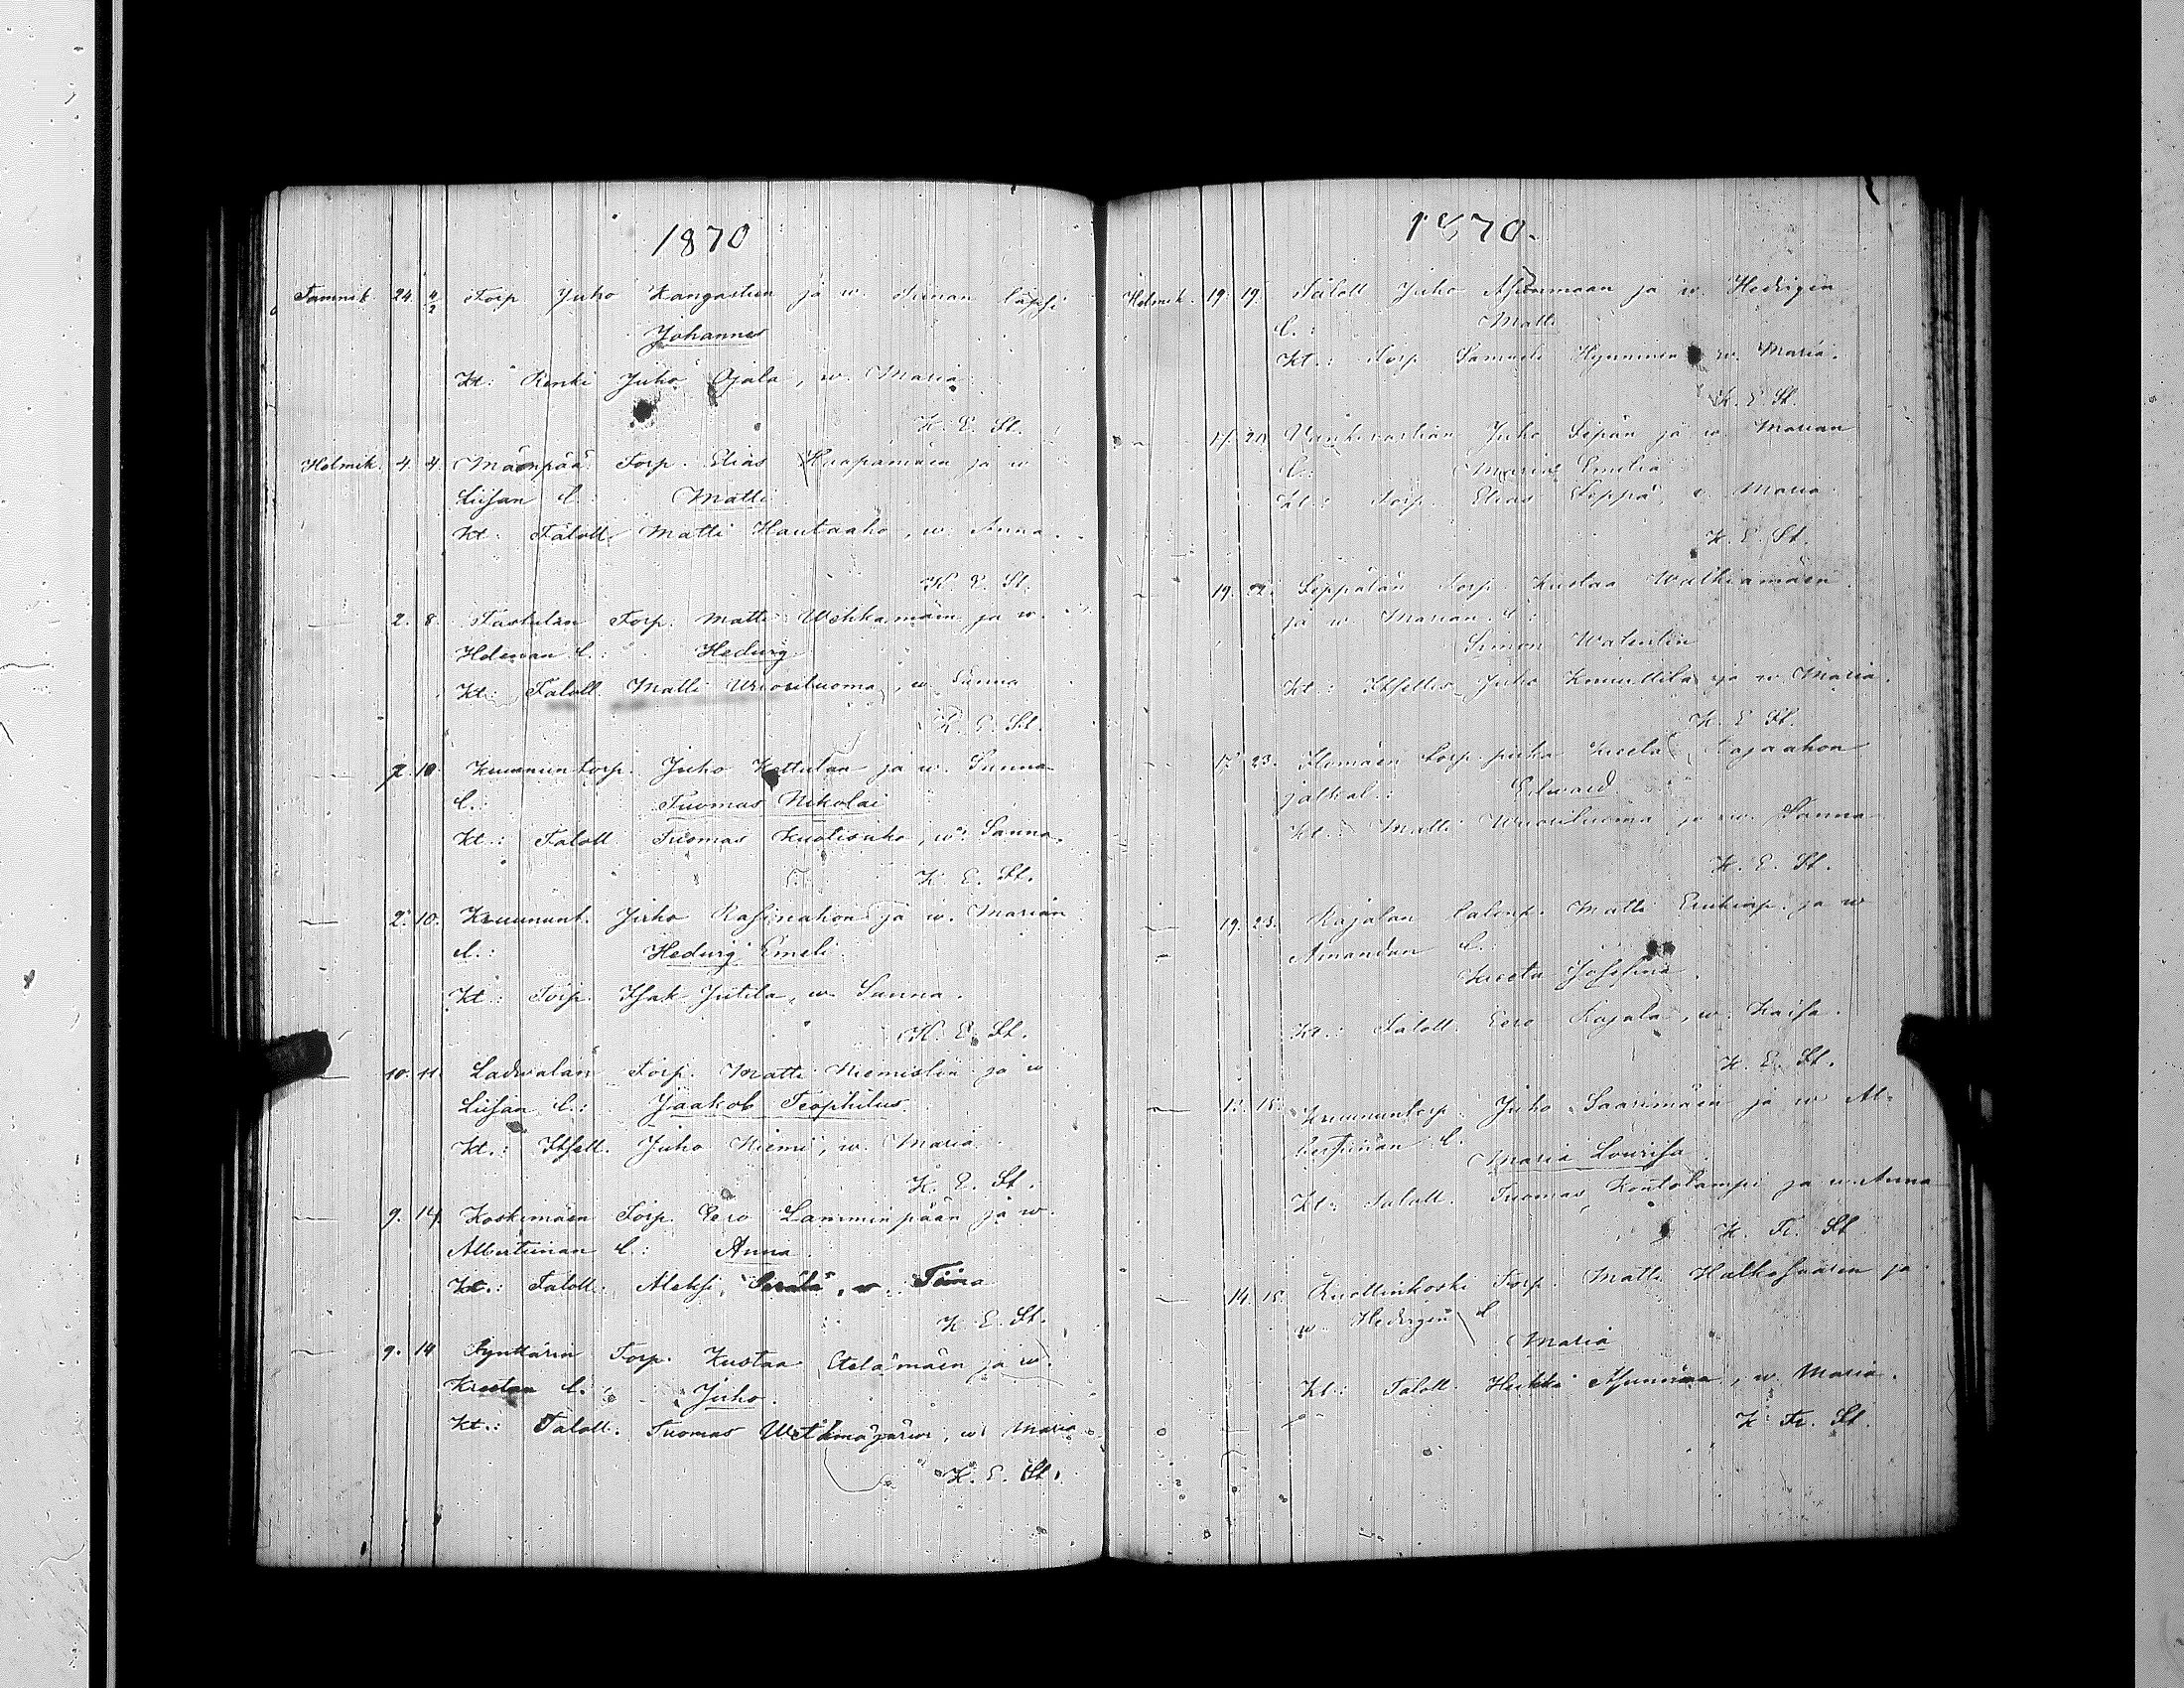 1870
Tammik. 24. 4/2 Torp Juho Kangastien ja w. Sannan lapsi
Johannes
Kt: Renki Juho Ojala, w. Maria
K. E. St.
Helmik. 4. 4. Mäenpää Torp. Elias Haapamäen ja w
Liisan l.: Matti
Kt: Taloll. Matti Hautaaho, w. Anna.
K. E. St.
— 2. 8. Torp. Matti Wehkamäen ja w.
Helenan l.: Hedvig
Kt: Taloll. Matti Wuoriluoma, w. Sanna
K. E. St.
— 7. 10. Kruununtorp. Juho Kattelan ja w. Sanna
l.: Tuomas Nikolai
Kt.: Taloll. Tuomas, w. Sanna.
K. E. St.
— 2. 10. Kruununt. Juho Rasinahon ja w. Marian
l.: Hedvig Emeli
Kt.: Torp. Isak Jutila, w. Sanna.
K. E. St.
— 10. 11. Ladvalan Torp. Matti Niemistön ja w
Liisan l.: Jaakob Teophilus.
Kt.: Itsell. Juho Niemi, w. Maria
K. E. St.
— 9. 14. Koskimäen Torp. Eero Lamminpään ja w.
Albertiinan l.: Anna.
Kt.: Taloll. Aleksi Perälä, w. Tiina
K. E. St.
— 9. 14 Torp. Kustaa Etelämäen ja w.
Kreetan l.: Juho.
Kt.: Taloll. Tuomas, w. Maria
K. E. St.
1870.
Helmik. 19. 19. Taloll Juho Asunmaan ja w. Hedvigin
l.: Matti
Kt.: Torp Samueli Hynninen w. Maria.
K. E. St.
— 17. 21. Juho Sepän ja w. Marian
l.: Maria Emilia
Kt.: Torp. Elias Seppä, w. Maria
K. E. St.
— 19. 22. Seppälän Torp. Kustaa Walkiamäen
ja w. Marian l.:
Simon Walentin
Kt.: Itsellis Juho Knuuttila ja w. Maria.
K. E. St.
— 17. 23. Ilomäen torp. Rajaahon
Edward
Kt.: Matti Wuoriluoma ja w. Sanna
K. E. St.
— 19. 23. Rajalan Matti ja w
Amandan l.:
Kreeta Josefina.
Kt.: Taloll. Eero Rajala, w. Kaisa.
K. E. St.
— 12. 15. Kruununtorp. Juho Saarimäen ja w Al-
bertinan l.
Maria Lovisa
Kt. Taloll. Tuomas Kontolampi ja w. Anna
K. Fr. St
— 14. 15. Kuottinkoski Torp. Matti Halkosaaren ja
w. Hedvigin l
Maria
Kt.: Taloll. Heikki Asunmaa, w. Maria.
K. Fr. St.